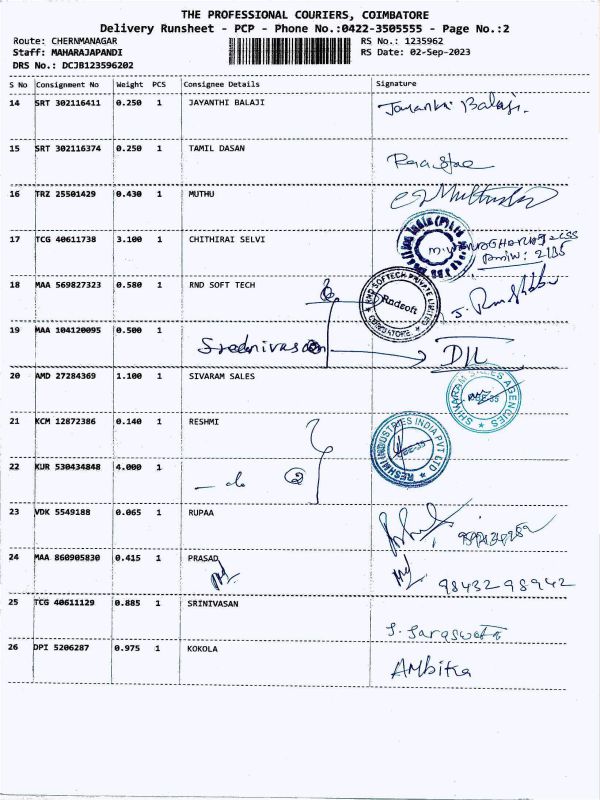 THE PROFESSIONAL COURIERS, COIMBATORE
Delivery Runsheet - PCP - Phone No.:0422-3505555 - Page No.:2
Route: CHERNMANAGAR RS No.: 1235962
Staff: MAHARAJAPANDI RS Date: 02-Sep-2023
DRS No.: DCJB123596202
S No Consignment No Weight PCS Consignee Details Signature
14 SRT 302116411 0.250 1 JAYANTHI BALAJI Jayanthi Balaji.
15 SRT 302116374 0.250 1 TAMIL DASAN
16 TRZ 25501429 0.430 1 MUTHU
17 TCG 40611738 3.100 1 CHITHIRAI SELVI
18 MAA 569827323 0.580 1 RND SOFT TECH RND SOFTECH PRIVATE LIMITED Radsoft
19 MAA 104120095 0.500 1 Sreenivasan
20 AMD 27284369 1.100 1 SIVARAM SALES SHIVARAM SALES AGENCIES
21 KCM 12872386 0.140 1 RESHMI RESHMI INDUSTRIES INDIA PVT LTD
22 KUR 530434848 4.000 1 - do
23 VDK 5549188 0.065 1 RUPAA
24 MAA 860905830 0.415 1 PRASAD 98432 98942
25 TCG 40611129 0.885 1 SRINIVASAN S. Saraswathi
26 DPI 5206287 0.975 1 KOKOLA AMbika